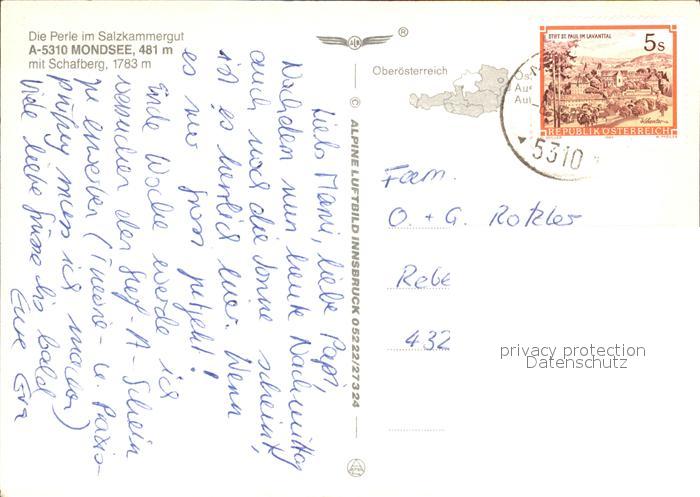 Die Perle im Salzkammergut
A-5310 MONDSEE, 481 m
mit Schafberg, 1783 m
®
Oberösterreich
STIFT ST. PAUL IM LAVANTTAL
5s
REPUBLIK ÖSTERREICH
5310
© ALPINE LUFTBILD INNSBRUCK 05222/27324
Liebe Mami, lieber Papi,
Nachdem nun heute Nachmittag
auch noch die Sonne scheint,
ist es herrlich hier. Wenn
es nur so
Ende Woche werde ich
versuchen den Surf-A-Schein
zu erwerben (Theorie- u. Praxis-
prüfung muss ich machen)
Viele liebe Grüsse bis bald
Eure Eva
Fam.
O. + G. Rotzler
Rebe
432
privacy protection
Datenschutz